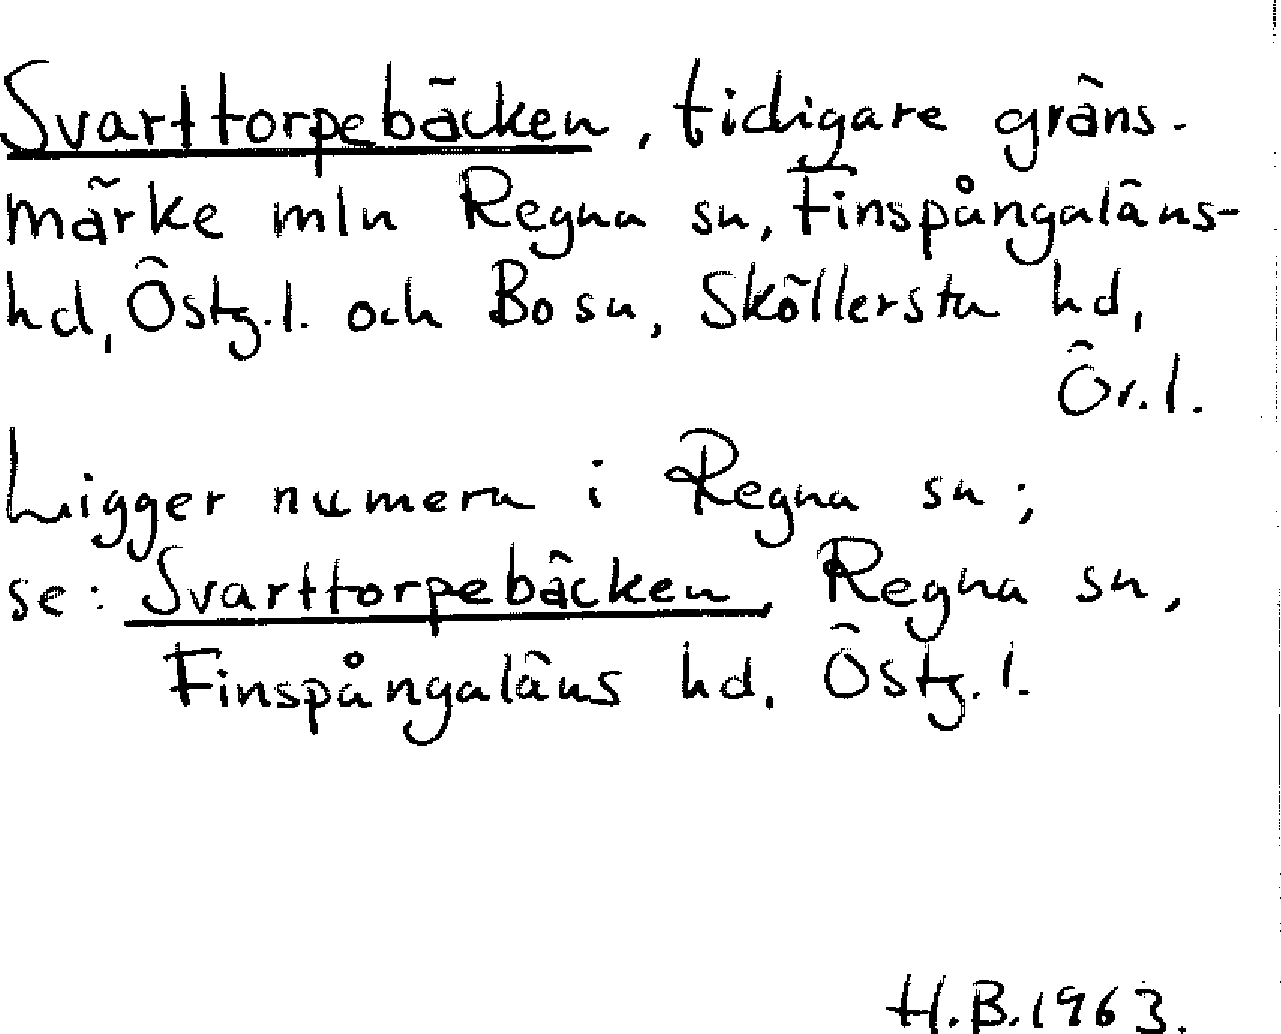 Svarttorpebäcken, tidigare gräns-
märke mln Regna sn, Finspångaläns-
hd, Östg.l. och Bo sn, Sköllersta hd,
Ör.l.
Ligger numera i Regna sn;
se: Svarttorpebäcken, Regna sn,
Finspångaläns hd, Östg.l.
H.B.1963.